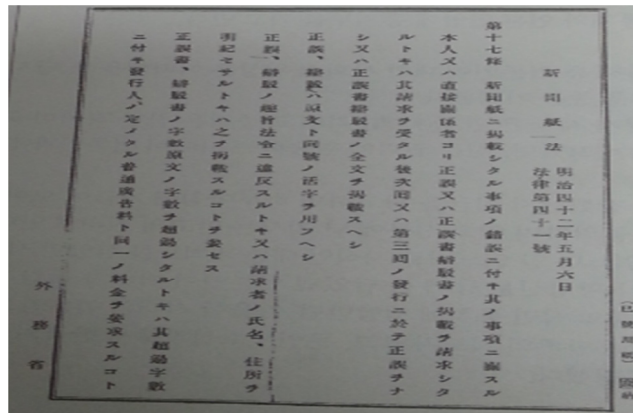 新聞紙法
明治四十二年五月六日
法律第四十一號
第十七條 新聞紙ニ掲載シタル事項ノ錯誤ニ付キ其ノ事項ニ關スル
本人又ハ直接關係者ヨリ正誤又ハ正誤書辯駁書ノ掲載ヲ請求シタ
ルトキハ其請求ヲ受タル後次囘又ハ第三囘ノ發行ニ於テ正誤ヲナ
シ又ハ正誤書辯駁書ノ全文ヲ掲載スヘシ
正誤、辯駁ハ原文ト同號ノ活字ヲ用フヘシ
正誤、辯駁ノ趣旨法令ニ違反スルトキ又ハ請求者ノ氏名、住所ヲ
明記セサルトキハ之ヲ掲載スルコトヲ要セス
正誤書、辯駁書ノ字數原文ノ字數ヲ超過シタルトキハ其超過字數
ニ付キ發行人ノ定メタル普通廣告料ト同一ノ料金ヲ要求スルコト
外務省